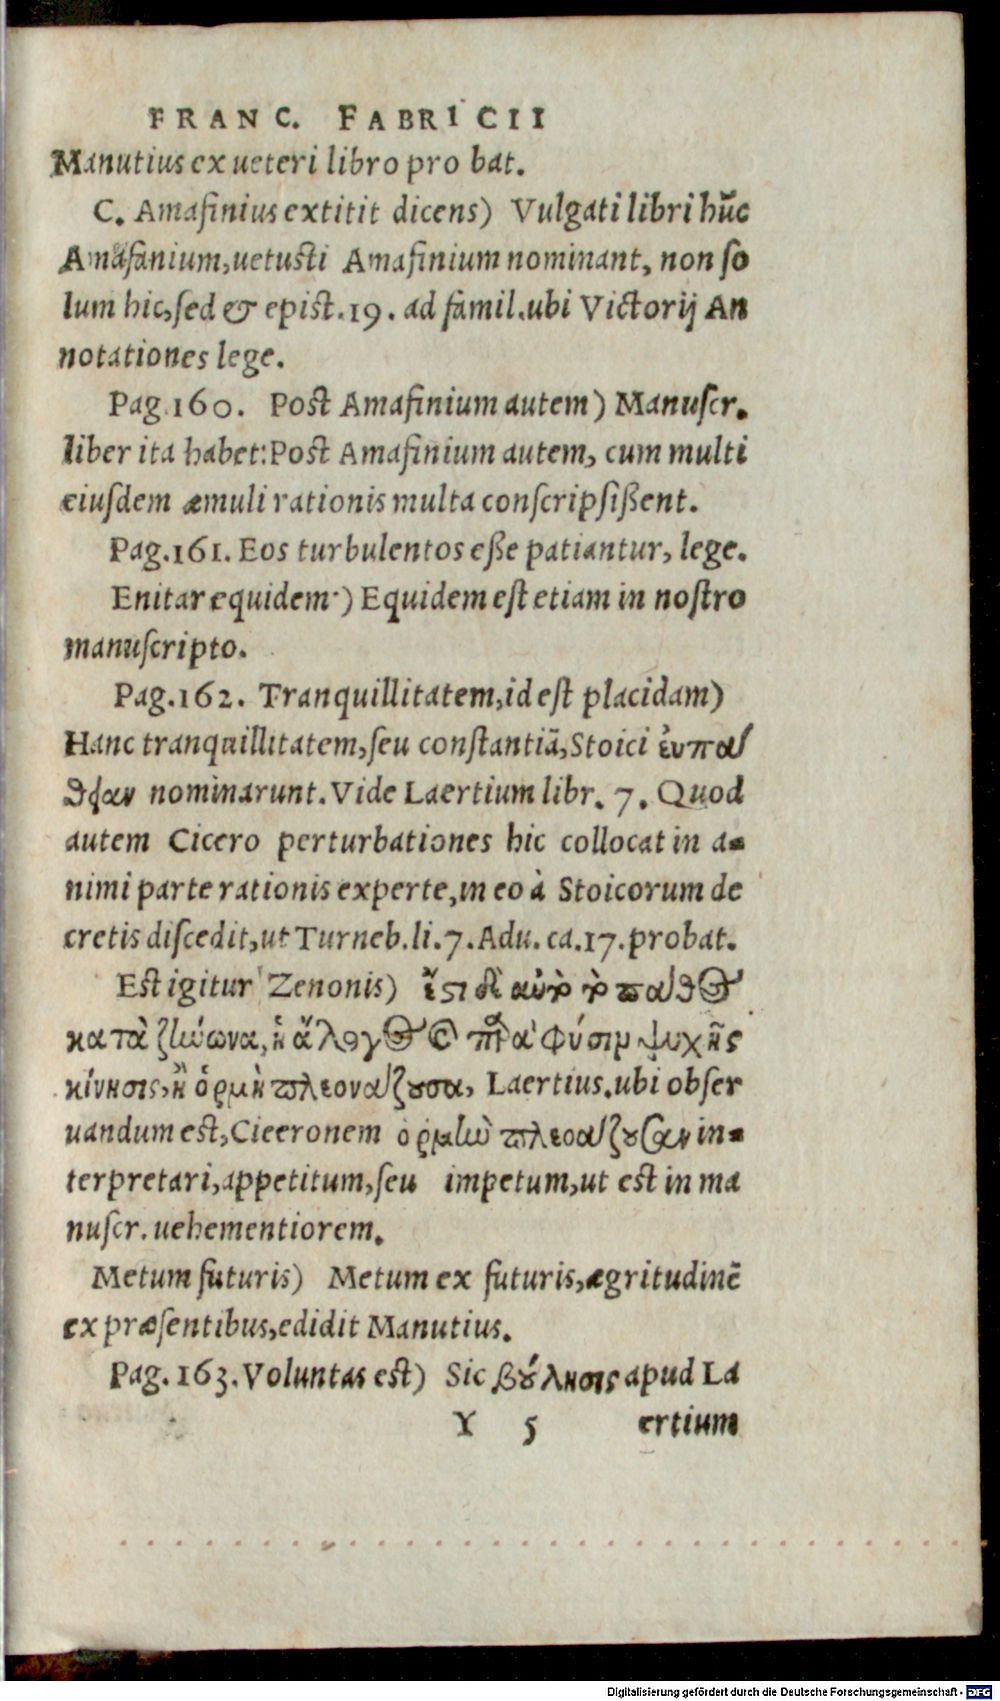 FRANC. FABRICII
Manutius ex ueteri libro pro bat.
C. Amafinius extitit dicens) Vulgati libri hūc
Amafanium, uetusti Amafinium nominant, non so
lum hic, sed & epist. 19. ad famil. ubi Victorij An
notationes lege.
Pag. 160. Post Amafinium autem) Manuscr.
liber ita habet: Post Amafinium autem, cum multi
eiusdem æmuli rationis multa conscripsißent.
Pag. 161. Eos turbulentos eße patiantur, lege.
Enitar equidem) Equidem est etiam in nostro
manuscripto.
Pag. 162. Tranquillitatem, id est placidam)
Hanc tranquillitatem, seu constantiā, Stoici ἐυπαί
θειαν nominarunt. Vide Laertium libr. 7. Quod
autem Cicero perturbationes hic collocat in a-
nimi parte rationis experte, in eo à Stoicorum de
cretis discedit, ut Turneb. li. 7. Adu. ca. 17. probat.
Est igitur Zenonis) ἔστι δὲ αὐτὸ τὸ πάθος
κατὰ ζήνωνα, ἡ ἄλογος καὶ παρὰ φύσιν ψυχῆς
κίνησις, ἢ ὁρμὴ πλεονάζουσα, Laertius. ubi obser
uandum est, Ciceronem ὁρμὴν πλεοάζουσαν in-
terpretari, appetitum, seu impetum, ut est in ma
nuscr. uehementiorem.
Metum futuris) Metum ex futuris, ægritudinē
ex præsentibus, edidit Manutius.
Pag. 163. Voluntas est) Sic βούλησις apud La
Y 5 ertium
Digitalisierung gefördert durch die Deutsche Forschungsgemeinschaft - DFG